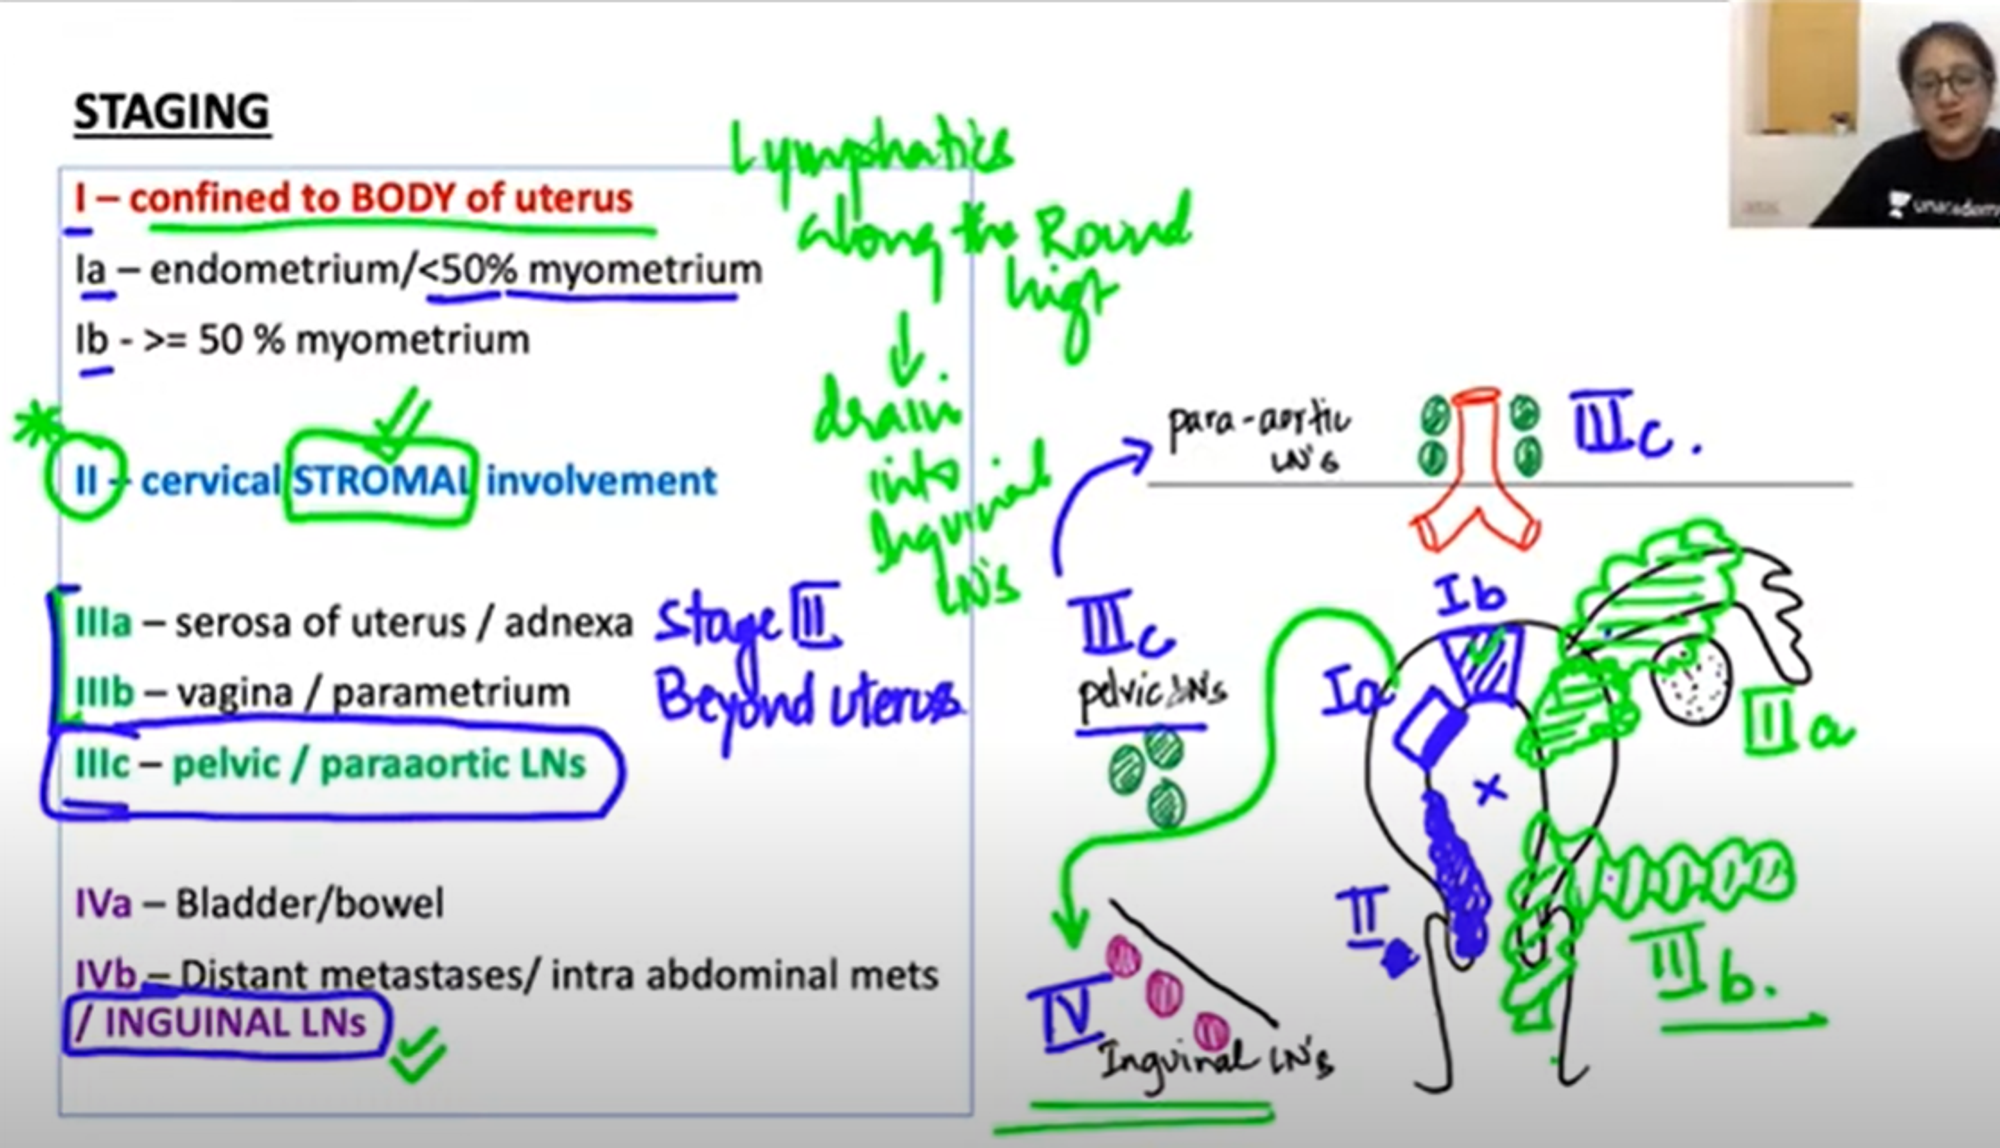 STAGING
I – confined to BODY of uterus
Ia – endometrium/<50% myometrium
Ib - >= 50 % myometrium
II – cervical STROMAL involvement
IIIa – serosa of uterus / adnexa
IIIb – vagina / parametrium
IIIc – pelvic / paraaortic LNs
IVa – Bladder/bowel
IVb – Distant metastases/ intra abdominal mets
/ INGUINAL LNs
Lymphatics
along the Round
ligt
drain
into
Inguinal
LN's
Stage III
Beyond uterus
para-aortic
LN's
IIIc.
IIIc
pelvic LN's
Ib
Ia
II
IIIa
IIIb.
IV
Inguinal LN's
unacadem